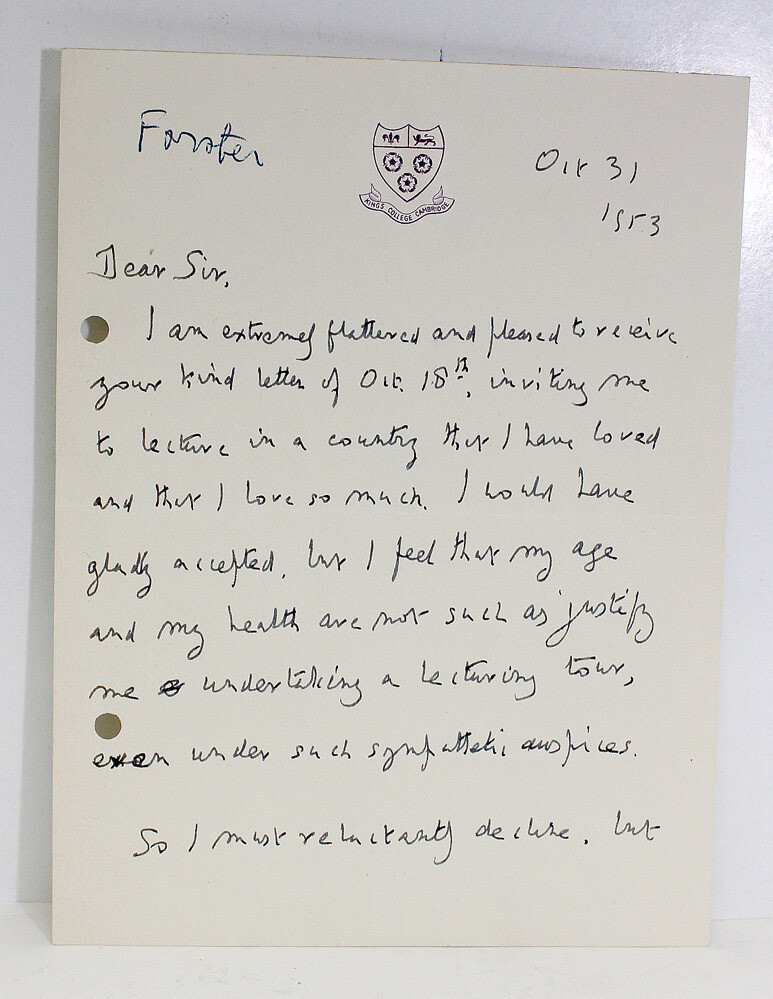 Forster
KINGS COLLEGE CAMBRIDGE
Oct 31
1953
Dear Sir,
I am extremely flattered and pleased to receive
your kind letter of Oct. 18th, inviting me
to lecture in a country that I have loved
and that I love so much. I would have
gladly accepted, but I feel that my age
and my health are not such as justify
me undertaking a lecturing tour,
even under such sympathetic auspices.
So I must reluctantly decline, but